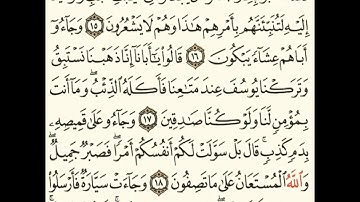 إِلَيْهِ لَتُنَبِّئَنَّهُم بِأَمْرِهِمْ هَٰذَا وَهُمْ لَا يَشْعُرُونَ ١٥ وَجَاءُو
أَبَاهُمْ عِشَاءً يَبْكُونَ ١٦ قَالُوا يَٰأَبَانَا إِنَّا ذَهَبْنَا نَسْتَبِقُ
وَتَرَكْنَا يُوسُفَ عِندَ مَتَٰعِنَا فَأَكَلَهُ الذِّئْبُ ۖ وَمَا أَنتَ
بِمُؤْمِنٍ لَّنَا وَلَوْ كُنَّا صَٰدِقِينَ ١٧ وَجَاءُو عَلَىٰ قَمِيصِهِ
بِدَمٍ كَذِبٍ ۚ قَالَ بَلْ سَوَّلَتْ لَكُمْ أَنفُسُكُمْ أَمْرًا ۖ فَصَبْرٌ جَمِيلٌ ۖ
وَاللَّهُ الْمُسْتَعَانُ عَلَىٰ مَا تَصِفُونَ ١٨ وَجَاءَتْ سَيَّارَةٌ فَأَرْسَلُوا